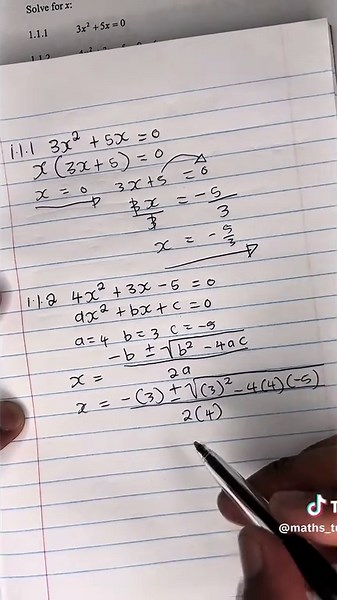 Solve for x:
1.1.1 3x² + 5x = 0
1.1.2
1.1.1 3x² + 5x = 0
x(3x + 5) = 0
x = 0 3x + 5 = 0
3x/3 = -5/3
x = -5/3
1.1.2 4x² + 3x - 5 = 0
ax² + bx + c = 0
a = 4 b = 3 c = -5
x = -b ± √b² - 4ac / 2a
x = -(3) ± √(3)² - 4(4)(-5) / 2(4)
@maths_t